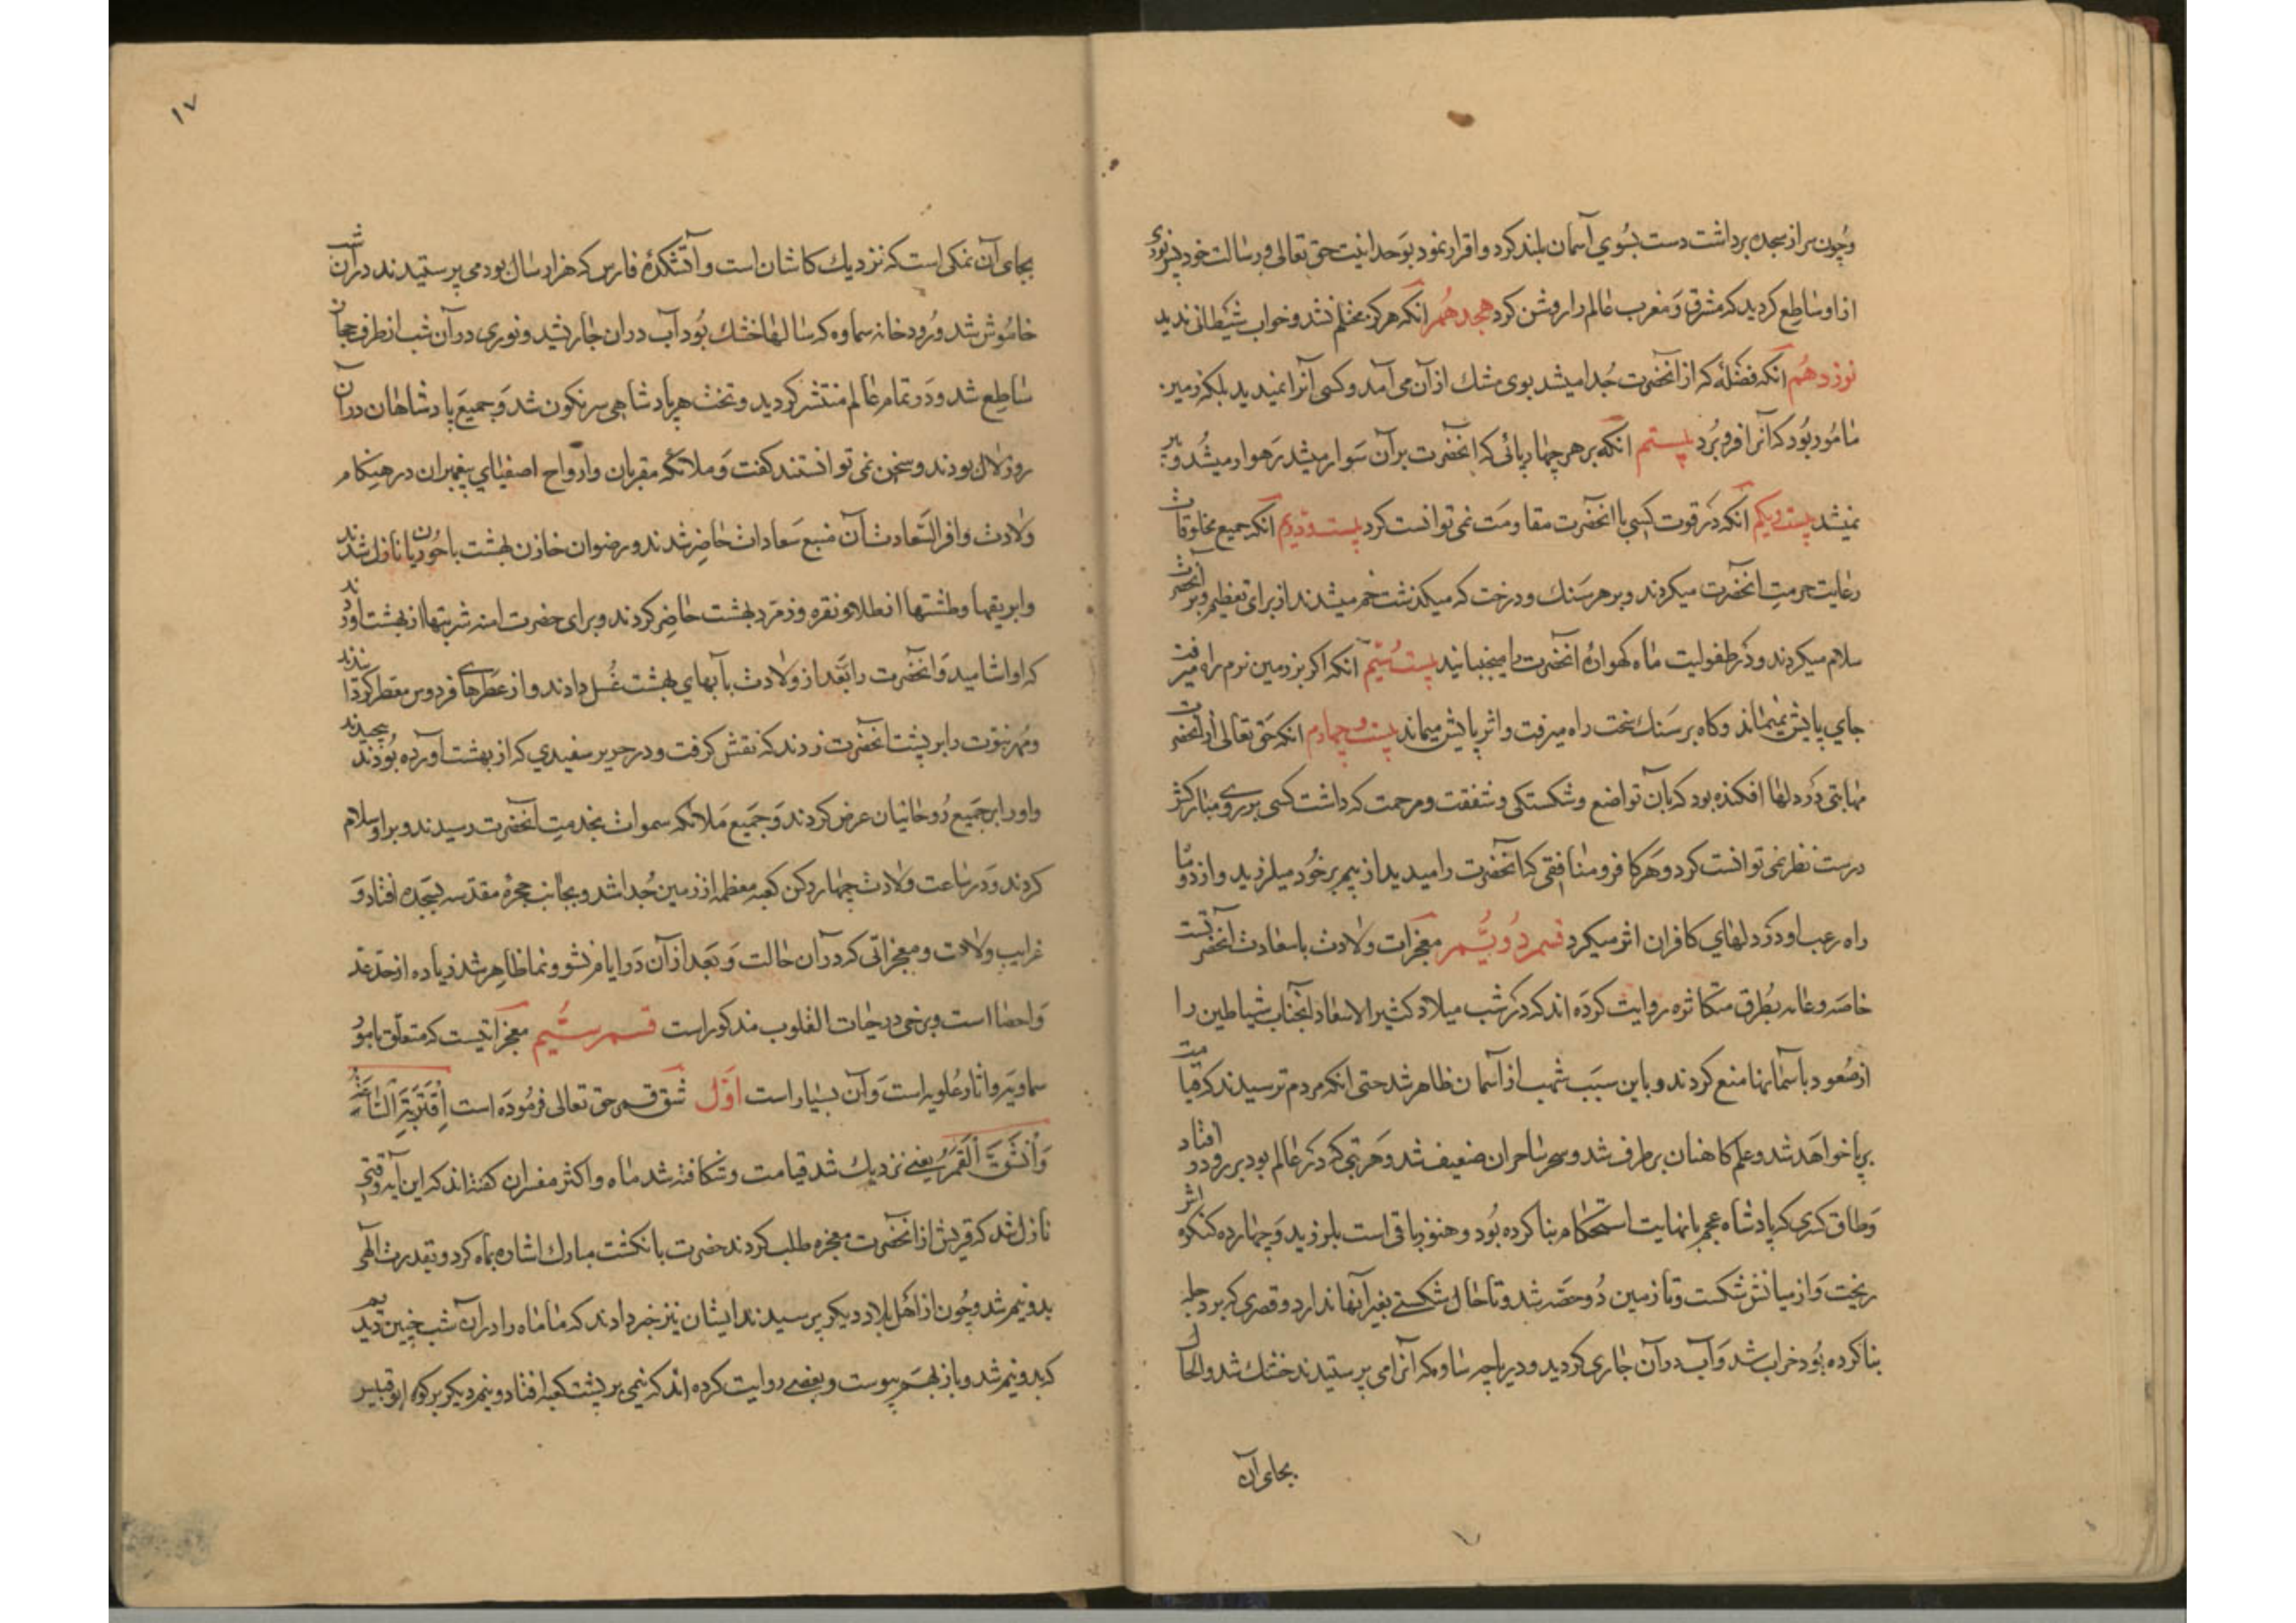 وچون سر از سجده برداشت دست بسوی آسمان بلند کرد و اقرار نمود بوحدانیت حق تعالی و رسالت خود پس نوری
از او ساطع کردید که مشرق و مغرب عالم را روشن کرد هجدهم آنکه هرکز محتلم نشد و خواب شیطانی ندید
نوزدهم آنکه فضلهٔ که از آنحضرت جدا میشد بوی مشک از آن می آمد و کسی آنرا نمیدید بلکه زمین
مامور بود که آنرا فرو برد بیستم آنکه بر هر چهارپائی که آنحضرت بر آن سوار میشد رهوار میشد و پیر
نمیشد بیست و یکم آنکه در قوت کسی با آنحضرت مقاومت نمی توانست کرد بیست و دویم آنکه جمیع مخلوقات
رعایت حرمت آنحضرت میکردند و بر هر سنک و درخت که میکذشت خم میشدند از برای تعظیم و بر آنحضرت
سلام میکردند و در طفولیت ماه کهوارهٔ آنحضرت را میجنبانید بیست و سیم آنکه اکر بر زمین نرم راه میرفت
جای پایش نمیماند و کاه بر سنک سخت راه میرفت و اثر پایش میماند بیست و چهارم آنکه حق تعالی از آنحضرت
مهابتی در دلها افکنده بود که بآن تواضع و شکستکی و شفقت و مرحمت که داشت کسی بر روی مبارکش
درست نظر نمی توانست کرد و هر کافر و منافقی که آنحضرت را میدید از بیم بر خود میلرزید و از دو ماه
راه رعب او در دلهای کافران اثر میکرد قسم دویم معجزات ولادت باسعادت آنحضرتست
خاصه و عامه بطرق متکاثره روایت کرده اند که در شب میلاد کثیر الاسعاد آنجناب شیاطین را
از صعود بآسمانها منع کردند و باین سبب شهب از آسمان ظاهر شد حتی آنکه مردم ترسیدند که قیامت
برپا خواهد شد و علم کاهنان برطرف شد و سحر ساحران ضعیف شد و هر بتی که در عالم بود بر رو در افتاد
و طاق کسری که پادشاه عجم بانهایت استحکام بنا کرده بود و هنوز اثر باقی است بلرزید و چهارده کنکره
ریخت و از میانش شکست و تا زمین دو حصه شد و تا حال شکستی بغیر آنها ندارد و قصری که بر دجله
بنا کرده بود خراب شد و آب در آن جاری کردید و دریاچه ساوه که آنرا می پرستیدند خشک شد و الحال
بجای آن
۱۷
بجای آن نمکی است که نزدیک کاشان است و آتشکدهٔ فارس که هزار سال بود می پرستیدند در آن شب
خاموش شد و رودخانه سماوه که سالها خشک بود آب در ان جاری شد و نوری در آن شب از طرف حجاز
ساطع شد و در تمام عالم منتشر کردید و تخت هر پادشاهی سرنکون شد و جمیع پادشاهان در آن
روز لال بودند و سخن نمی توانستند کفت و ملائکه مقربان و ارواح اصفیای پیغمبران در هنکام
ولادت وافر السعادت آن منبع سعادات حاضر شدند و رضوان خازن بهشت با حوریان نازل شدند
و ابریقها و طشتها از طلا و نقره و زمرد بهشت حاضر کردند و برای حضرت آمنه شربتها از بهشت آوردند
که او اشامید و آنحضرت را بعد از ولادت بآبهای بهشت غسل دادند و از عطرهای فردوس معطر کردانیدند
و مهر نبوت را بر پشت آنحضرت زدند که نقش کرفت و در حریر سفیدی که از بهشت آورده بودند پیچیدند
و او را بر جمیع روحانیان عرض کردند و جمیع ملائکه سموات بخدمت آنحضرت رسیدند و بر او سلام
کردند و در ساعت ولادت چهار رکن کعبه معظمه از زمین جدا شد و بجانب حجرهٔ مقدسه بسجده افتاد و
غرایب ولادت و معجزاتی که در آن حالت و بعد از آن در ایام نشو و نما ظاهر شد زیاده از حد عد
و احصا است و برخی در حیات القلوب مذکور است قسم سیم معجزاتیست که متعلق بامور
سماویه و اثار علویه است و آن بسیار است اول شق قمر حق تعالی فرموده است اقتربت الساعة
و انشق القمر یعنی نزدیک شد قیامت و شکافته شد ماه و اکثر مفسران کفته اند که این آیه وقتی
نازل شد که قریش از آنحضرت معجزه طلب کردند حضرت بانکشت مبارک اشاره بماه کرد و بقدرت الهی
بدو نیم شد و چون از اهل بلاد دیکر پرسیدند ایشان نیز خبر دادند که ما ماه را در آن شب چنین دیدیم
که بدو نیم شد و باز بهم پیوست و بعضی روایت کرده اند که نیمی بر پشت کعبه افتاد و نیم دیکر بر کوه ابو قبیس